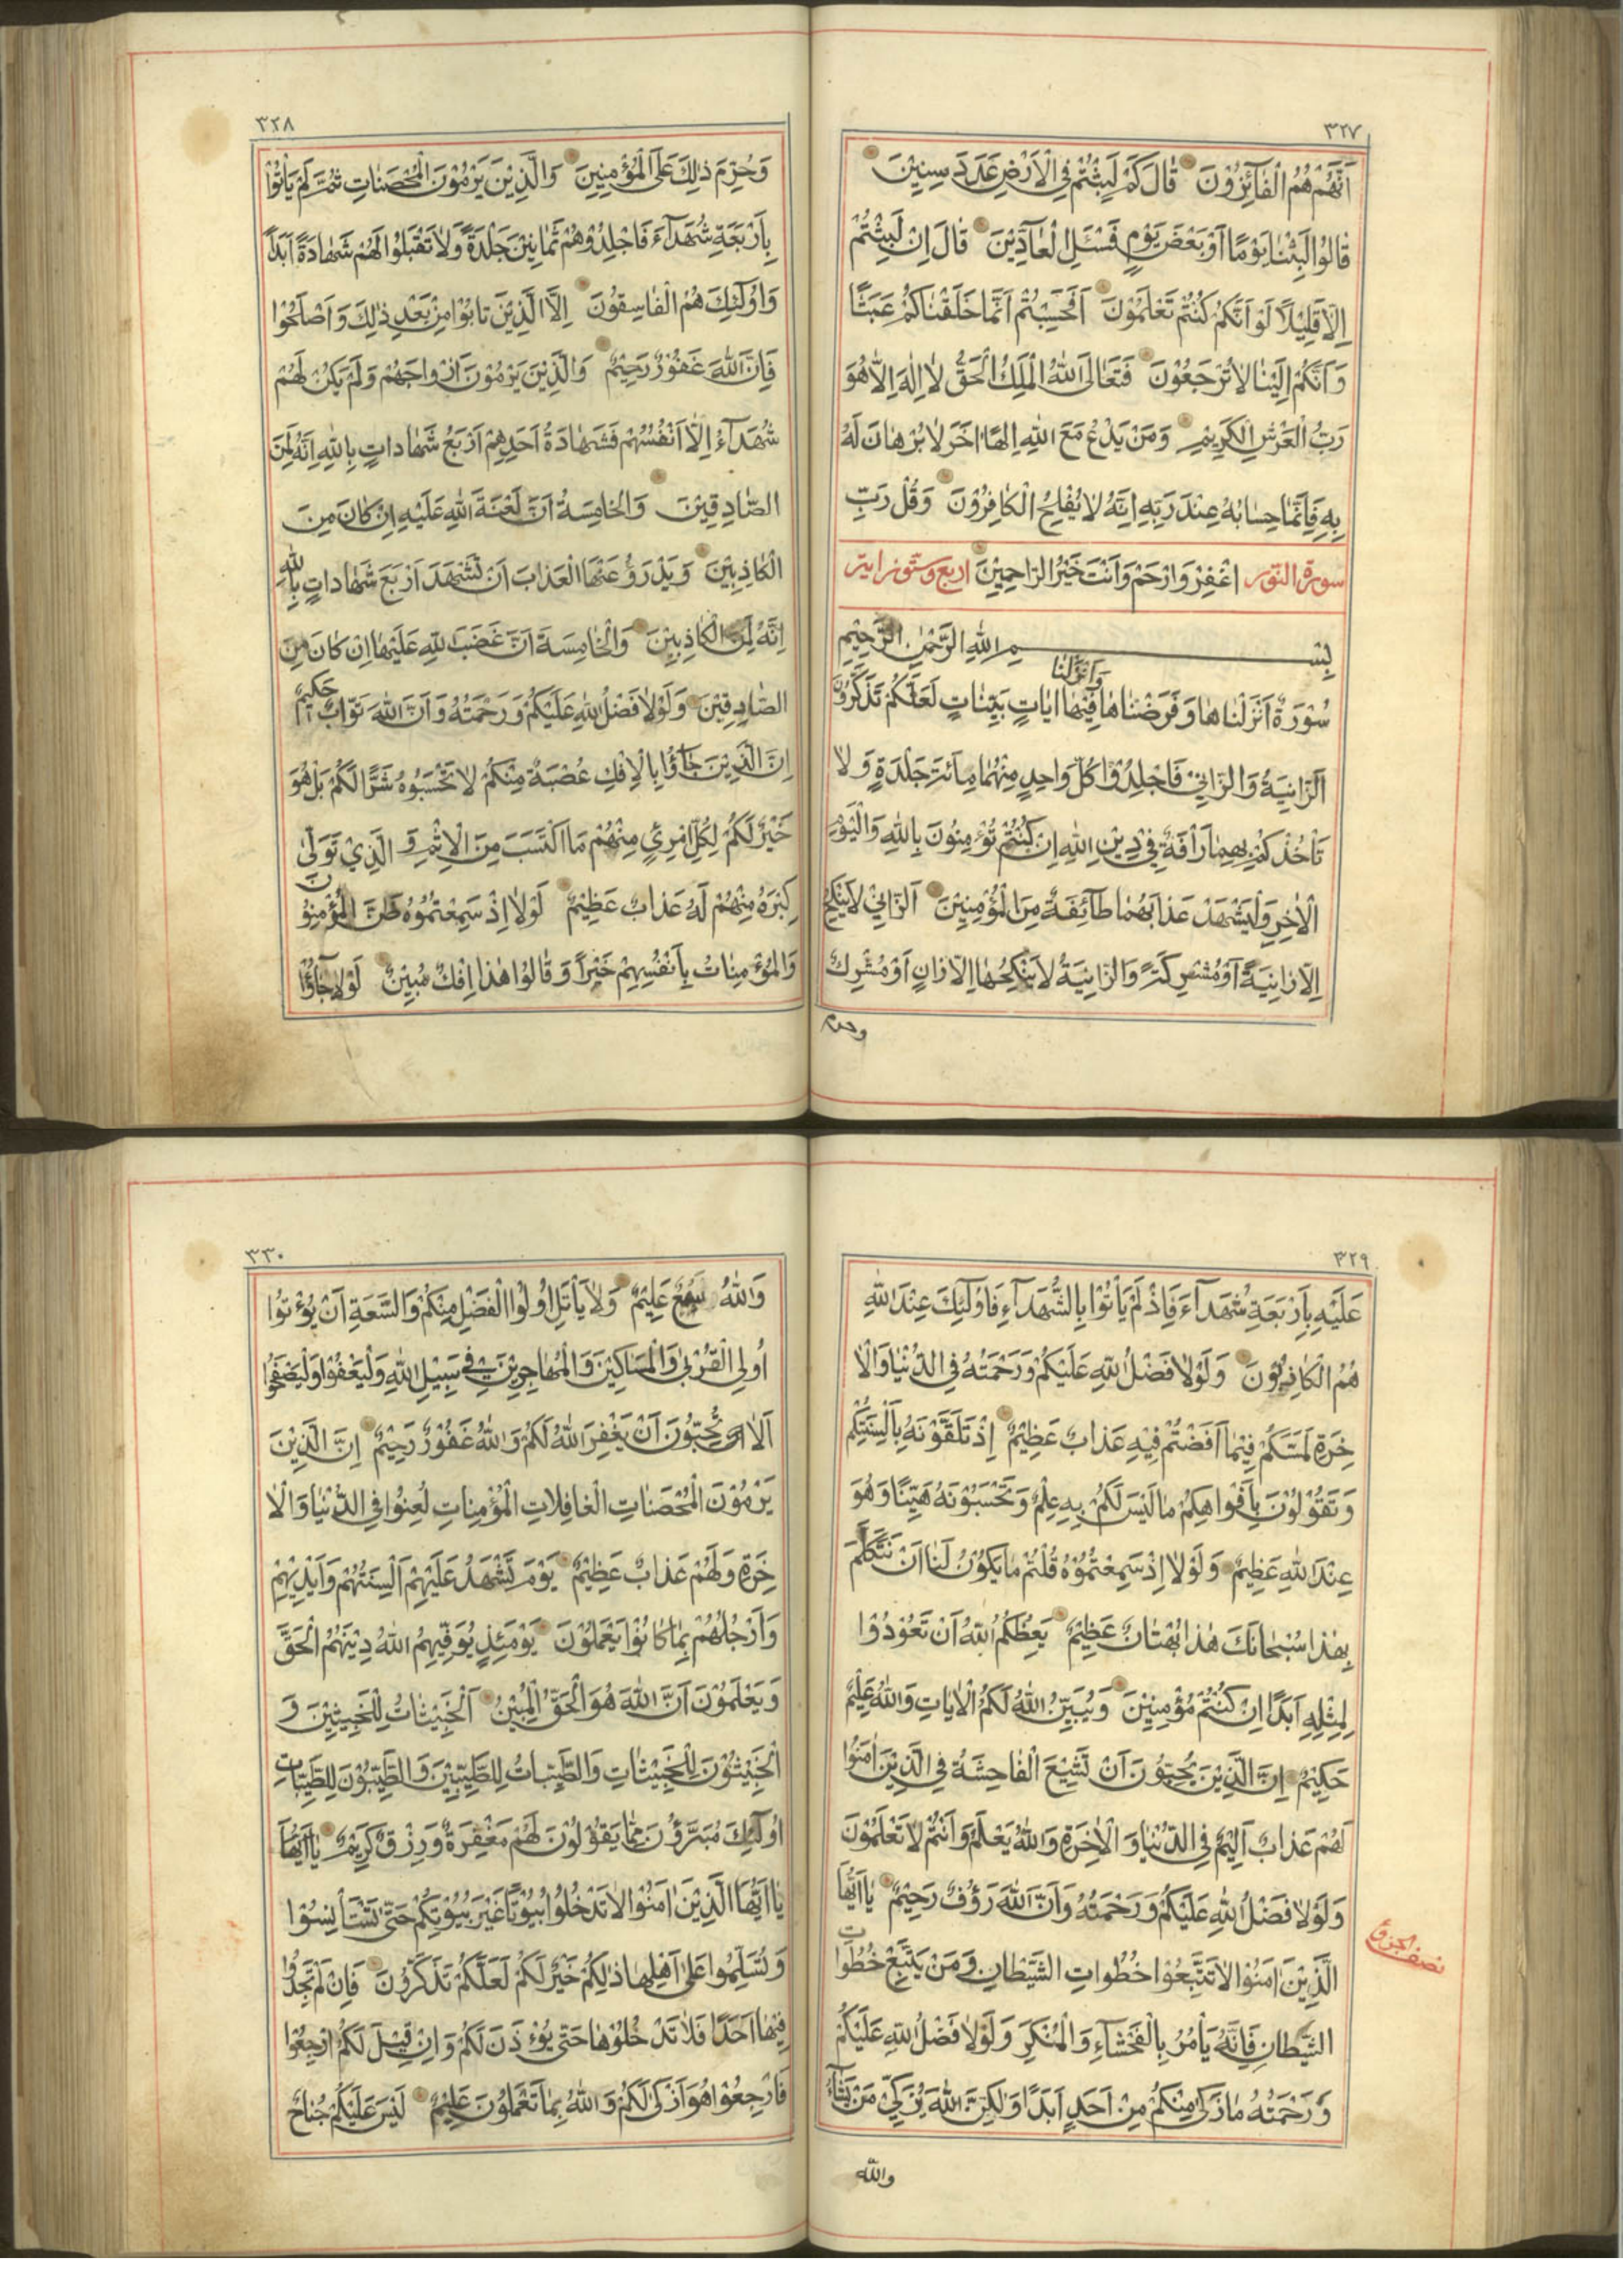 ٣٢٧
اَنَّهُمْ هُمُ الْفَآئِزُوْنَ قَالَ كَمْ لَبِثْتُمْ فِي الْاَرْضِ عَدَدَ سِنِيْنَ
قَالُوْا لَبِثْنَا يَوْمًا اَوْ بَعْضَ يَوْمٍ فَسْئَلِ الْعَآدِّيْنَ قَالَ اِنْ لَبِثْتُمْ
اِلَّا قَلِيْلًا لَوْ اَنَّكُمْ كُنْتُمْ تَعْلَمُوْنَ اَفَحَسِبْتُمْ اَنَّمَا خَلَقْنَاكُمْ عَبَثًا
وَ اَنَّكُمْ اِلَيْنَا لَا تُرْجَعُوْنَ فَتَعَالَى اللّٰهُ الْمَلِكُ الْحَقُّ لَا اِلٰهَ اِلَّا هُوَ
رَبُّ الْعَرْشِ الْكَرِيْمِ وَ مَنْ يَدْعُ مَعَ اللّٰهِ اِلٰهًا اٰخَرَ لَا بُرْهَانَ لَهُ
بِهِ فَاِنَّمَا حِسَابُهُ عِنْدَ رَبِّهِ اِنَّهُ لَا يُفْلِحُ الْكَافِرُوْنَ وَ قُلْ رَبِّ
سورة النور اغْفِرْ وَ ارْحَمْ وَ اَنْتَ خَيْرُ الرَّاحِمِيْنَ اربع وستون اية
بِسْمِ اللّٰهِ الرَّحْمٰنِ الرَّحِيْمِ
وَ اَنْزَلْنَا
سُوْرَةٌ اَنْزَلْنَاهَا وَ فَرَضْنَاهَا فِيْهَا اٰيَاتٍ بَيِّنَاتٍ لَعَلَّكُمْ تَذَكَّرُوْنَ
اَلزَّانِيَةُ وَ الزَّانِيْ فَاجْلِدُوْا كُلَّ وَاحِدٍ مِنْهُمَا مِائَةَ جَلْدَةٍ وَ لَا
تَأْخُذْكُمْ بِهِمَا رَأْفَةٌ فِيْ دِيْنِ اللّٰهِ اِنْ كُنْتُمْ تُؤْمِنُوْنَ بِاللّٰهِ وَ الْيَوْمِ
الْاٰخِرِ وَ لْيَشْهَدْ عَذَابَهُمَا طَآئِفَةٌ مِنَ الْمُؤْمِنِيْنَ اَلزَّانِيْ لَا يَنْكِحُ
اِلَّا زَانِيَةً اَوْ مُشْرِكَةً وَ الزَّانِيَةُ لَا يَنْكِحُهَا اِلَّا زَانٍ اَوْ مُشْرِكٌ
وحرم
٣٢٨
وَ حُرِّمَ ذٰلِكَ عَلَى الْمُؤْمِنِيْنَ وَ الَّذِيْنَ يَرْمُوْنَ الْمُحْصَنَاتِ ثُمَّ لَمْ يَأْتُوْا
بِاَرْبَعَةِ شُهَدَآءَ فَاجْلِدُوْهُمْ ثَمَانِيْنَ جَلْدَةً وَ لَا تَقْبَلُوْا لَهُمْ شَهَادَةً اَبَدًا
وَ اُولٰٓئِكَ هُمُ الْفَاسِقُوْنَ اِلَّا الَّذِيْنَ تَابُوْا مِنْ بَعْدِ ذٰلِكَ وَ اَصْلَحُوْا
فَاِنَّ اللّٰهَ غَفُوْرٌ رَحِيْمٌ وَ الَّذِيْنَ يَرْمُوْنَ اَزْوَاجَهُمْ وَ لَمْ يَكُنْ لَهُمْ
شُهَدَآءُ اِلَّا اَنْفُسُهُمْ فَشَهَادَةُ اَحَدِهِمْ اَرْبَعُ شَهَادَاتٍ بِاللّٰهِ اِنَّهُ لَمِنَ
الصَّادِقِيْنَ وَ الْخَامِسَةُ اَنَّ لَعْنَةَ اللّٰهِ عَلَيْهِ اِنْ كَانَ مِنَ
الْكَاذِبِيْنَ وَ يَدْرَؤُا عَنْهَا الْعَذَابَ اَنْ تَشْهَدَ اَرْبَعَ شَهَادَاتٍ بِاللّٰهِ
اِنَّهُ لَمِنَ الْكَاذِبِيْنَ وَ الْخَامِسَةَ اَنَّ غَضَبَ اللّٰهِ عَلَيْهَا اِنْ كَانَ مِنَ
الصَّادِقِيْنَ وَ لَوْلَا فَضْلُ اللّٰهِ عَلَيْكُمْ وَ رَحْمَتُهُ وَ اَنَّ اللّٰهَ تَوَّابٌ حَكِيْمٌ
اِنَّ الَّذِيْنَ جَآؤُا بِالْاِفْكِ عُصْبَةٌ مِنْكُمْ لَا تَحْسَبُوْهُ شَرًّا لَكُمْ بَلْ هُوَ
خَيْرٌ لَكُمْ لِكُلِّ امْرِئٍ مِنْهُمْ مَا اكْتَسَبَ مِنَ الْاِثْمِ وَ الَّذِيْ تَوَلّٰى
كِبْرَهُ مِنْهُمْ لَهُ عَذَابٌ عَظِيْمٌ لَوْلَا اِذْ سَمِعْتُمُوْهُ ظَنَّ الْمُؤْمِنُوْنَ
وَ الْمُؤْمِنَاتُ بِاَنْفُسِهِمْ خَيْرًا وَ قَالُوْا هٰذَا اِفْكٌ مُبِيْنٌ لَوْلَا جَآؤُا
٣٢٩
عَلَيْهِ بِاَرْبَعَةِ شُهَدَآءَ فَاِذْ لَمْ يَأْتُوْا بِالشُّهَدَآءِ فَاُولٰٓئِكَ عِنْدَ اللّٰهِ
هُمُ الْكَاذِبُوْنَ وَ لَوْلَا فَضْلُ اللّٰهِ عَلَيْكُمْ وَ رَحْمَتُهُ فِي الدُّنْيَا وَ الْاٰ
خِرَةِ لَمَسَّكُمْ فِيْمَا اَفَضْتُمْ فِيْهِ عَذَابٌ عَظِيْمٌ اِذْ تَلَقَّوْنَهُ بِاَلْسِنَتِكُمْ
وَ تَقُوْلُوْنَ بِاَفْوَاهِكُمْ مَا لَيْسَ لَكُمْ بِهِ عِلْمٌ وَ تَحْسَبُوْنَهُ هَيِّنًا وَ هُوَ
عِنْدَ اللّٰهِ عَظِيْمٌ وَ لَوْلَا اِذْ سَمِعْتُمُوْهُ قُلْتُمْ مَا يَكُوْنُ لَنَا اَنْ نَتَكَلَّمَ
بِهٰذَا سُبْحَانَكَ هٰذَا بُهْتَانٌ عَظِيْمٌ يَعِظُكُمُ اللّٰهُ اَنْ تَعُوْدُوْا
لِمِثْلِهِ اَبَدًا اِنْ كُنْتُمْ مُؤْمِنِيْنَ وَ يُبَيِّنُ اللّٰهُ لَكُمُ الْاٰيَاتِ وَ اللّٰهُ عَلِيْمٌ
حَكِيْمٌ اِنَّ الَّذِيْنَ يُحِبُّوْنَ اَنْ تَشِيْعَ الْفَاحِشَةُ فِي الَّذِيْنَ اٰمَنُوْا
لَهُمْ عَذَابٌ اَلِيْمٌ فِي الدُّنْيَا وَ الْاٰخِرَةِ وَ اللّٰهُ يَعْلَمُ وَ اَنْتُمْ لَا تَعْلَمُوْنَ
وَ لَوْلَا فَضْلُ اللّٰهِ عَلَيْكُمْ وَ رَحْمَتُهُ وَ اَنَّ اللّٰهَ رَؤُفٌ رَحِيْمٌ يَا اَيُّهَا
نصف الجزؤ
الَّذِيْنَ اٰمَنُوْا لَا تَتَّبِعُوْا خُطُوَاتِ الشَّيْطَانِ وَ مَنْ يَتَّبِعْ خُطُوَاتِ
الشَّيْطَانِ فَاِنَّهُ يَأْمُرُ بِالْفَحْشَآءِ وَ الْمُنْكَرِ وَ لَوْلَا فَضْلُ اللّٰهِ عَلَيْكُمْ
وَ رَحْمَتُهُ مَا زَكٰى مِنْكُمْ مِنْ اَحَدٍ اَبَدًا وَ لٰكِنَّ اللّٰهَ يُزَكِّيْ مَنْ يَشَآءُ
والله
٣٣٠
وَ اللّٰهُ سَمِيْعٌ عَلِيْمٌ وَ لَا يَأْتَلِ اُولُوا الْفَضْلِ مِنْكُمْ وَ السَّعَةِ اَنْ يُؤْتُوْا
اُولِي الْقُرْبٰى وَ الْمَسَاكِيْنَ وَ الْمُهَاجِرِيْنَ فِيْ سَبِيْلِ اللّٰهِ وَ لْيَعْفُوْا وَ لْيَصْفَحُوْا
اَلَا تُحِبُّوْنَ اَنْ يَغْفِرَ اللّٰهُ لَكُمْ وَ اللّٰهُ غَفُوْرٌ رَحِيْمٌ اِنَّ الَّذِيْنَ
يَرْمُوْنَ الْمُحْصَنَاتِ الْغَافِلَاتِ الْمُؤْمِنَاتِ لُعِنُوْا فِي الدُّنْيَا وَ الْاٰ
خِرَةِ وَ لَهُمْ عَذَابٌ عَظِيْمٌ يَوْمَ تَشْهَدُ عَلَيْهِمْ اَلْسِنَتُهُمْ وَ اَيْدِيْهِمْ
وَ اَرْجُلُهُمْ بِمَا كَانُوْا يَعْمَلُوْنَ يَوْمَئِذٍ يُوَفِّيْهِمُ اللّٰهُ دِيْنَهُمُ الْحَقَّ
وَ يَعْلَمُوْنَ اَنَّ اللّٰهَ هُوَ الْحَقُّ الْمُبِيْنُ اَلْخَبِيْثَاتُ لِلْخَبِيْثِيْنَ وَ
الْخَبِيْثُوْنَ لِلْخَبِيْثَاتِ وَ الطَّيِّبَاتُ لِلطَّيِّبِيْنَ وَ الطَّيِّبُوْنَ لِلطَّيِّبَاتِ
اُولٰٓئِكَ مُبَرَّؤُنَ مِمَّا يَقُوْلُوْنَ لَهُمْ مَغْفِرَةٌ وَ رِزْقٌ كَرِيْمٌ يَا اَيُّهَا
يَا اَيُّهَا الَّذِيْنَ اٰمَنُوْا لَا تَدْخُلُوْا بُيُوْتًا غَيْرَ بُيُوْتِكُمْ حَتّٰى تَسْتَأْنِسُوْا
وَ تُسَلِّمُوْا عَلٰى اَهْلِهَا ذٰلِكُمْ خَيْرٌ لَكُمْ لَعَلَّكُمْ تَذَكَّرُوْنَ فَاِنْ لَمْ تَجِدُوْا
فِيْهَا اَحَدًا فَلَا تَدْخُلُوْهَا حَتّٰى يُؤْذَنَ لَكُمْ وَ اِنْ قِيْلَ لَكُمُ ارْجِعُوْا
فَارْجِعُوْا هُوَ اَزْكٰى لَكُمْ وَ اللّٰهُ بِمَا تَعْمَلُوْنَ عَلِيْمٌ لَيْسَ عَلَيْكُمْ جُنَاحٌ